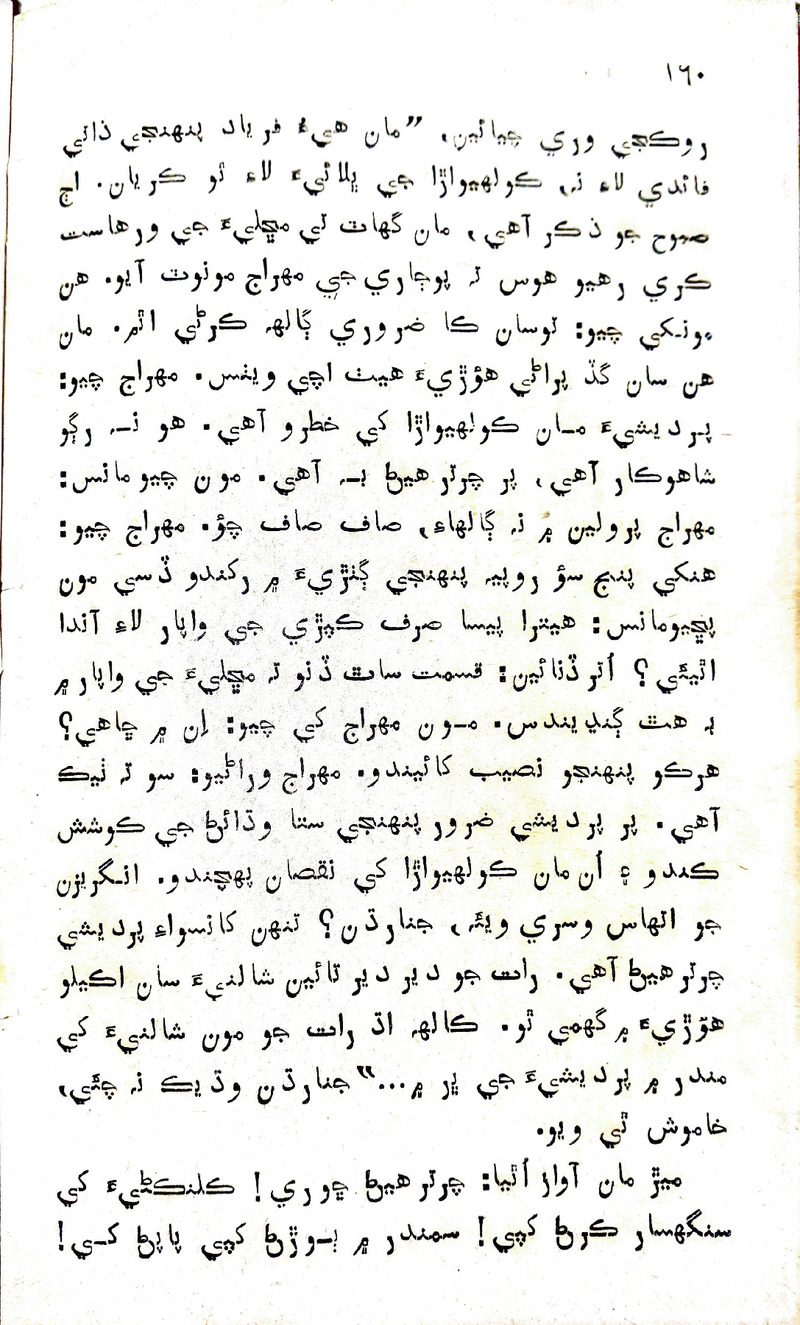 ١٦٠
روڪجي وري چيائين، ”مان هيءُ فرياد پنهنجي ذاتي
فائدي لاءِ نہ، ڪولهيواڙا جي ڀلائيءَ لاءِ ٿو ڪريان. اڄ
صبوح جو ذڪر آهي، مان گهاٽ تي مڇليءَ جي ورهاست
ڪري رهيو هوس تہ پوڄاري جي مهراج مونوٽ آيو. هن
مونکي چيو: توسان ڪا ضروري ڳالهہ ڪرڻي اٿم. مان
هن سان گڏ پراڻي هوڙيءَ هيٺ اچي ويٺس. مهراج چيو:
پرديشيءَ مان ڪولهيواڙا کي خطرو آهي. هو نہ رڳو
شاهوڪار آهي، پر چرترهيڻ بہ آهي. مون چيومانس:
مهراج پرولين ۾ نہ ڳالهاءِ، صاف صاف چؤ. مهراج چيو:
هنکي پنج سؤ روپيہ پنهنجي ڳنڙيءَ ۾ رکندو ڏسي مون
پڇيومانس: هيترا پيسا صرف ڪپڙي جي واپار لاءِ آندا
اٿيئي؟ اُتر ڏنائين: قسمت ساٿ ڏنو تہ مڇليءَ جي واپار ۾
بہ هٿ ڳنڍيندس. مون مهراج کي چيو: اِن ۾ ڇاهي؟
هرڪو پنهنجو نصيب کائيندو. مهراج وراڻيو: سو تہ ٺيڪ
آهي. پر پرديشي ضرور پنهنجي ستا وڌائڻ جي ڪوشش
ڪندو ۽ اُن مان ڪولهيواڙا کي نقصان پهچندو. انگريزن
جو اتهاس وسري ويئہ، جنارڌن؟ تنهن کانسواءِ پرديشي
چرترهيڻ آهي. رات جو دير دير تائين شالنيءَ سان اڪيلو
هوڙيءَ ۾ گهمي ٿو. ڪالهہ اڌ رات جو مون شالنيءَ کي
مندر ۾ پرديشيءَ جي ڀر ۾...“ جنارڌن وڌيڪ نہ چئي،
خاموش ٿي ويو.
ميڙ مان آواز اُٿيا: چرترهيڻ ڇوري! ڪلنڪڻيءَ کي
سنگهسار ڪرڻ کپي! سمندر ۾ ٻوڙڻ کپي پاپڻ کي!